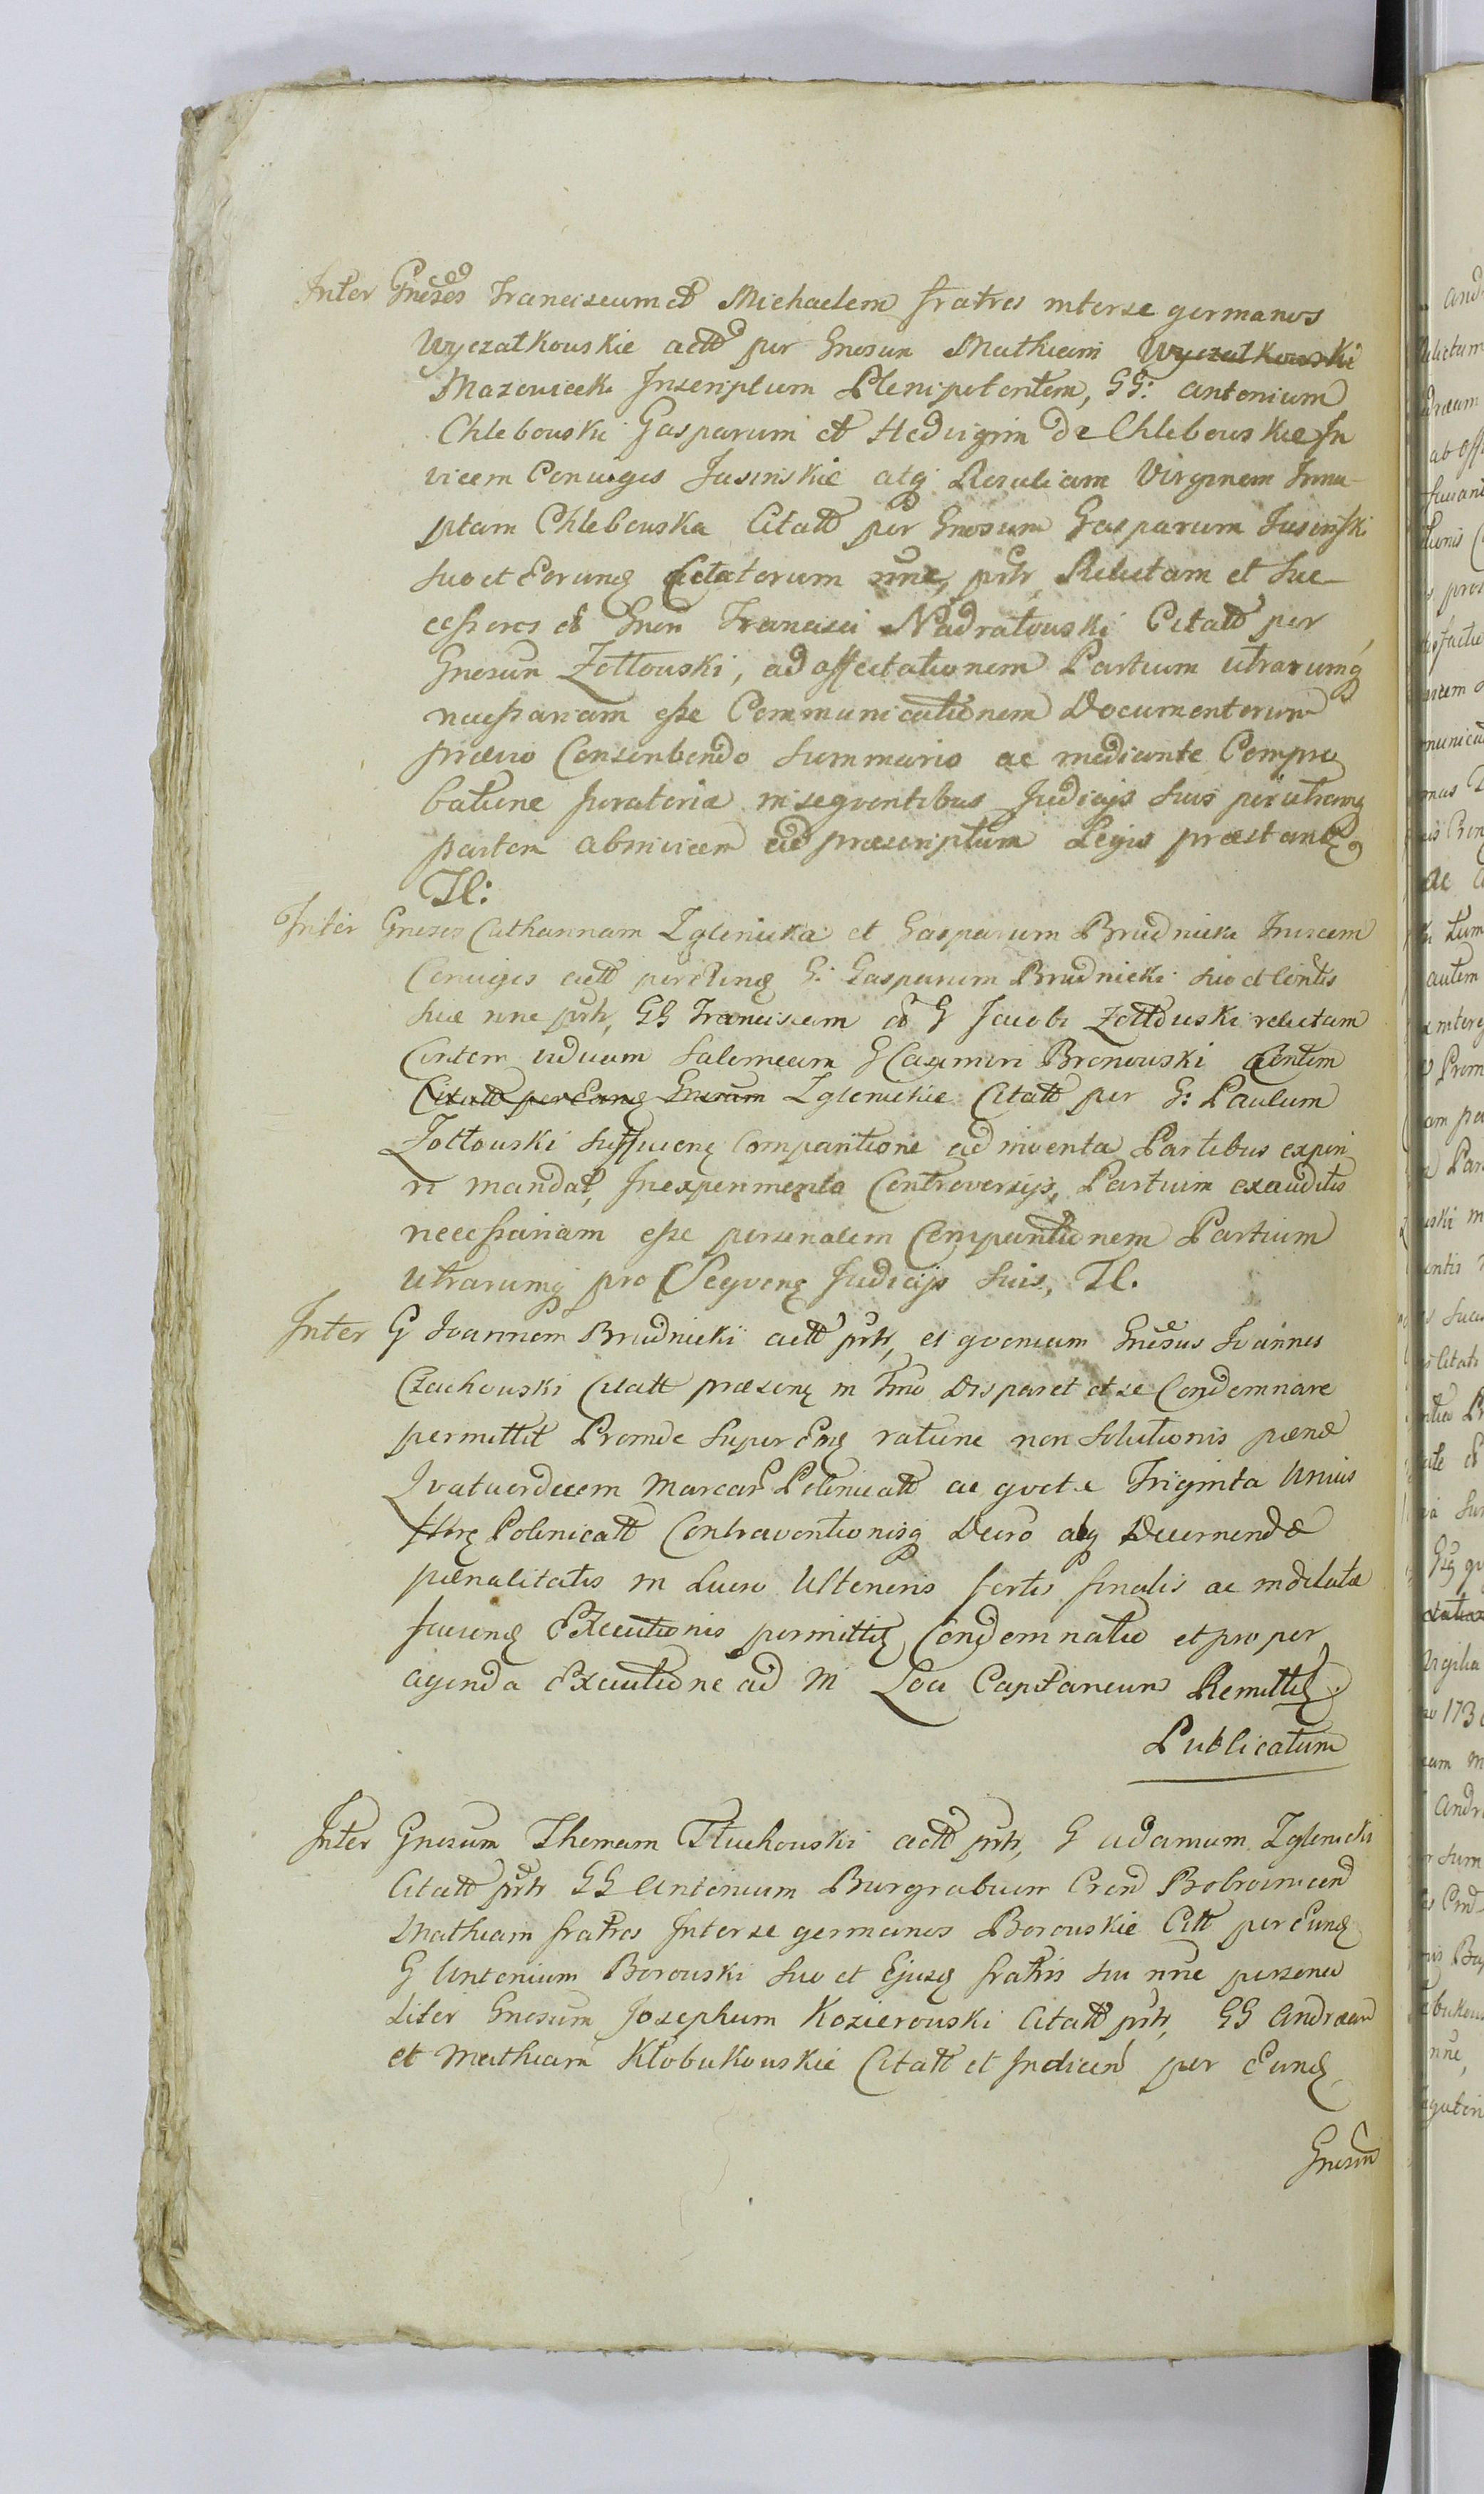 Inter Gnesos Franciscum et Michaelem fratres interse germanos
Wyczałkowskie actt per Gnosum Mathiam Wyczałkowski
Mazowieck. Inscriptum Plenipotentem, GG: Antonium
Chlebowski Gasparum et Hedvigim de Chlebowskie In
vicem Coniuges Jasinskie atq Rosaliam Virginem Innu-
ptam Chlebowska Citatt per Gnosum Gasparum Jasinski
suo et Eorunq Citatorum nne, prtr, Relictam et Suc-
cessores Gnon Francisci Nadratowski Citatt per
Gnosum Zołtowski, ad affectationem Partium utrarumq
necessariam esse Communicationem Documentorum
prævio Conscribendo Summario ac mediante Compro
batione juratoria in seqventibus Judicijs suis per utramq
partem abinvicem ad præscriptum Legis præstanđ,
Tl:
Inter Gnesos Catharinam Zglenicka et Gasparum Brudnicki Invicem
Coniuges actt per Eunq G: Gasparum Brudnicki suo et Contis
suæ nne prtr, GG Franciscam G Jacobi Zołtowski relictam
Contem viduam Salomeam G Casimiri Bronowski Contem
Citatt per Eamq Gnesum Zglenickie Citatt per G: Paulum
Zołtowski Sufficienq Comparitione adinventa Partibus experi
ri mandat, Inexperimento Controversijs, Partium exauditis
necessariam esse personalem Comparitionem Partium
Utrarumq pro Seqvenq Judicijs suis, Tl.
Inter G Joannem Brudnicki actt prtr, et qvoniam Gnesus Joannes
Czachowski Citatt præsenq in Tmo Disparet et se Condemnare
permittit Proinde super Eoq ratione non Solutionis pænæ
Qvatuordecem Marcar Polonicatt ac qvotæ Triginta Unius
Polonicatt Contraventionisq Decro atq Decernendæ
pænalitatis in Lucro Ulterioris fortis finalis ac indilatæ
Execution­is permittiq Condemnatio et pro per
agenda Executione ad M Loci Capitaneum Remittiq.
Publicatum
Inter Gnesum Thomam Tłuchowski actt prtr, G adamum Zglenicki
Citatt prtr GG Antonium Burgrabium
Mathiam fratres Interse germanos Borowskie Citt per Eunq
G Antonium Borowski suo et Ejusq fratris sui nne persona
liter Gnesum Josephum Kozierowski Citatt prtr, GG Andream
et Mathiam Kłobukowskie Citatt et Indicen per Eunq
Gnesum